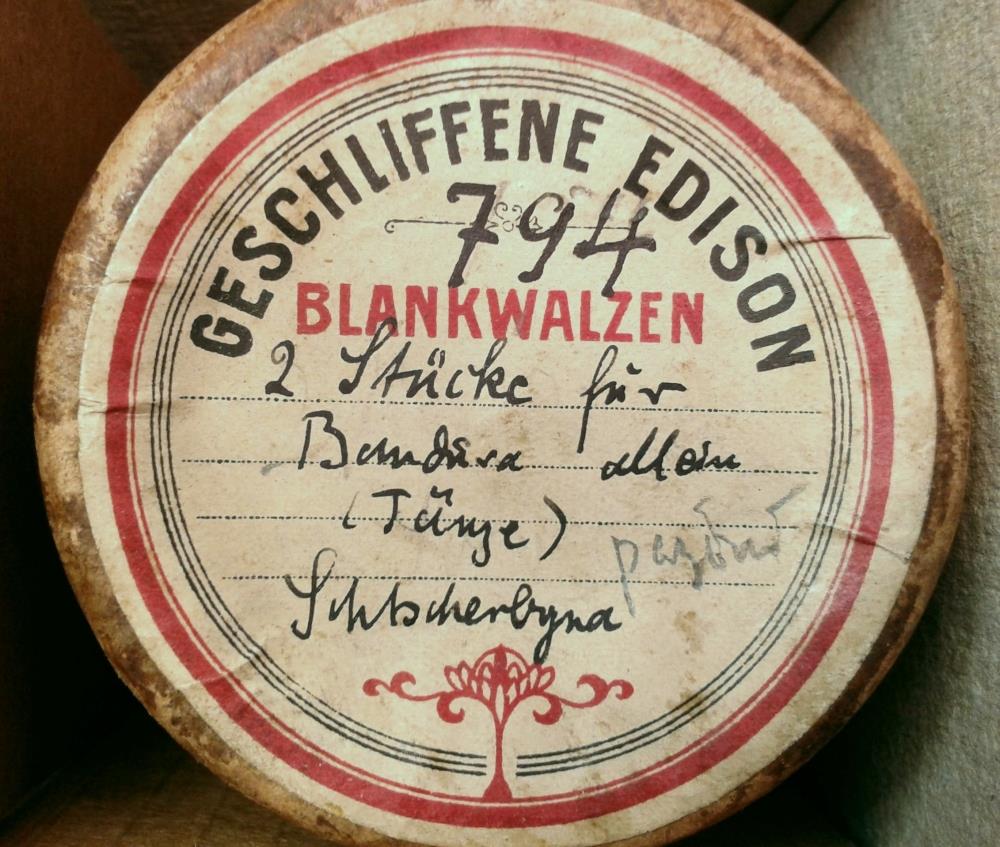 GESCHLIFFENE EDISON
794
BLANKWALZEN
2 Stücke für
Bandura allein
(Tänze)
Schtscherbyna